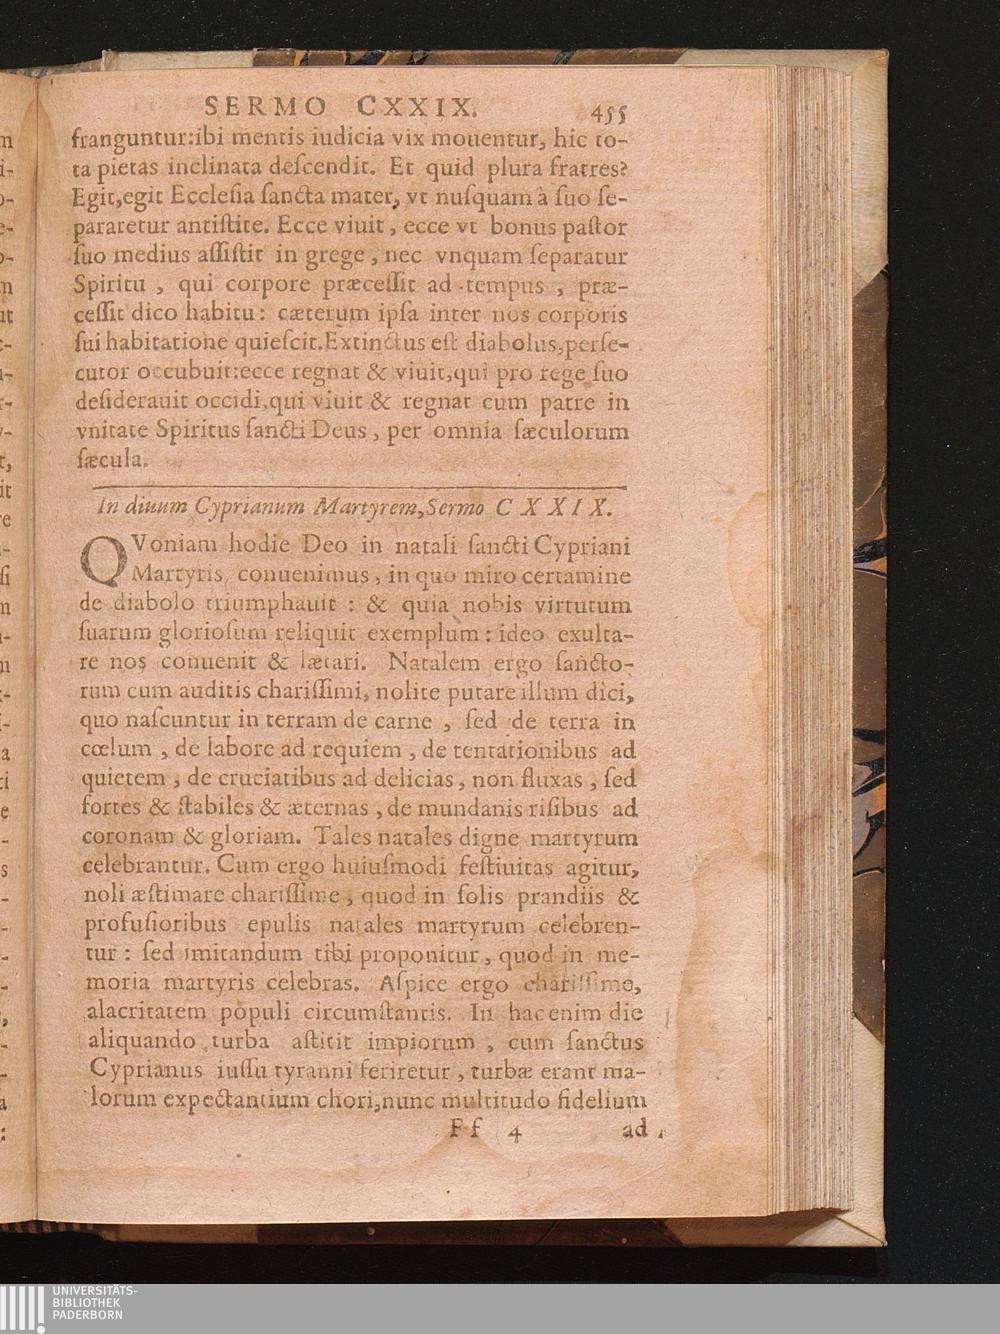 SERMO CXXIX. 455
franguntur:ibi mentis iudicia vix mouentur, hic to-
ta pietas inclinata deſcendit. Et quid plura fratres?
Egit,egit Eccleſia ſancta mater, vt nuſquam à ſuo ſe-
pararetur antiſtite. Ecce viuit, ecce vt bonus paſtor
ſuo medius aſſiſtit in grege, nec vnquam ſeparatur
Spiritu, qui corpore præceſſit ad tempus, præ-
ceſſit dico habitu: cæterum ipſa inter nos corporis
ſui habitatione quieſcit.Extinctus eſt diabolus,perſe-
cutor occubuit:ecce regnat & viuit,qui pro rege ſuo
deſiderauit occidi,qui viuit & regnat cum patre in
vnitate Spiritus ſancti Deus, per omnia ſæculorum
ſæcula.
In diuum Cyprianum Martyrem,Sermo CXXIX.
QVoniam hodie Deo in natali ſancti Cypriani
Martyris, conuenimus, in quo miro certamine
de diabolo triumphauit : & quia nobis virtutum
ſuarum glorioſum reliquit exemplum : ideo exulta-
re nos conuenit & lætari. Natalem ergo ſancto-
rum cum auditis chariſſimi, nolite putare illum dici,
quo naſcuntur in terram de carne, ſed de terra in
cœlum, de labore ad requiem, de tentationibus ad
quietem, de cruciatibus ad delicias, non fluxas, ſed
fortes & ſtabiles & æternas, de mundanis riſibus ad
coronam & gloriam. Tales natales digne martyrum
celebrantur. Cum ergo huiuſmodi feſtiuitas agitur,
noli æſtimare chariſſime, quod in ſolis prandiis &
profuſioribus epulis natales martyrum celebren-
tur : ſed imitandum tibi proponitur, quod in me-
moria martyris celebras. Aſpice ergo chariſſime,
alacritatem populi circumſtantis. In hac enim die
aliquando turba aſtitit impiorum, cum ſanctus
Cyprianus iuſſu tyranni feriretur, turbæ erant ma-
lorum expectantium chori,nunc multitudo fidelium
Ff 4 ad
UNIVERSITÄTS-
BIBLIOTHEK
PADERBORN